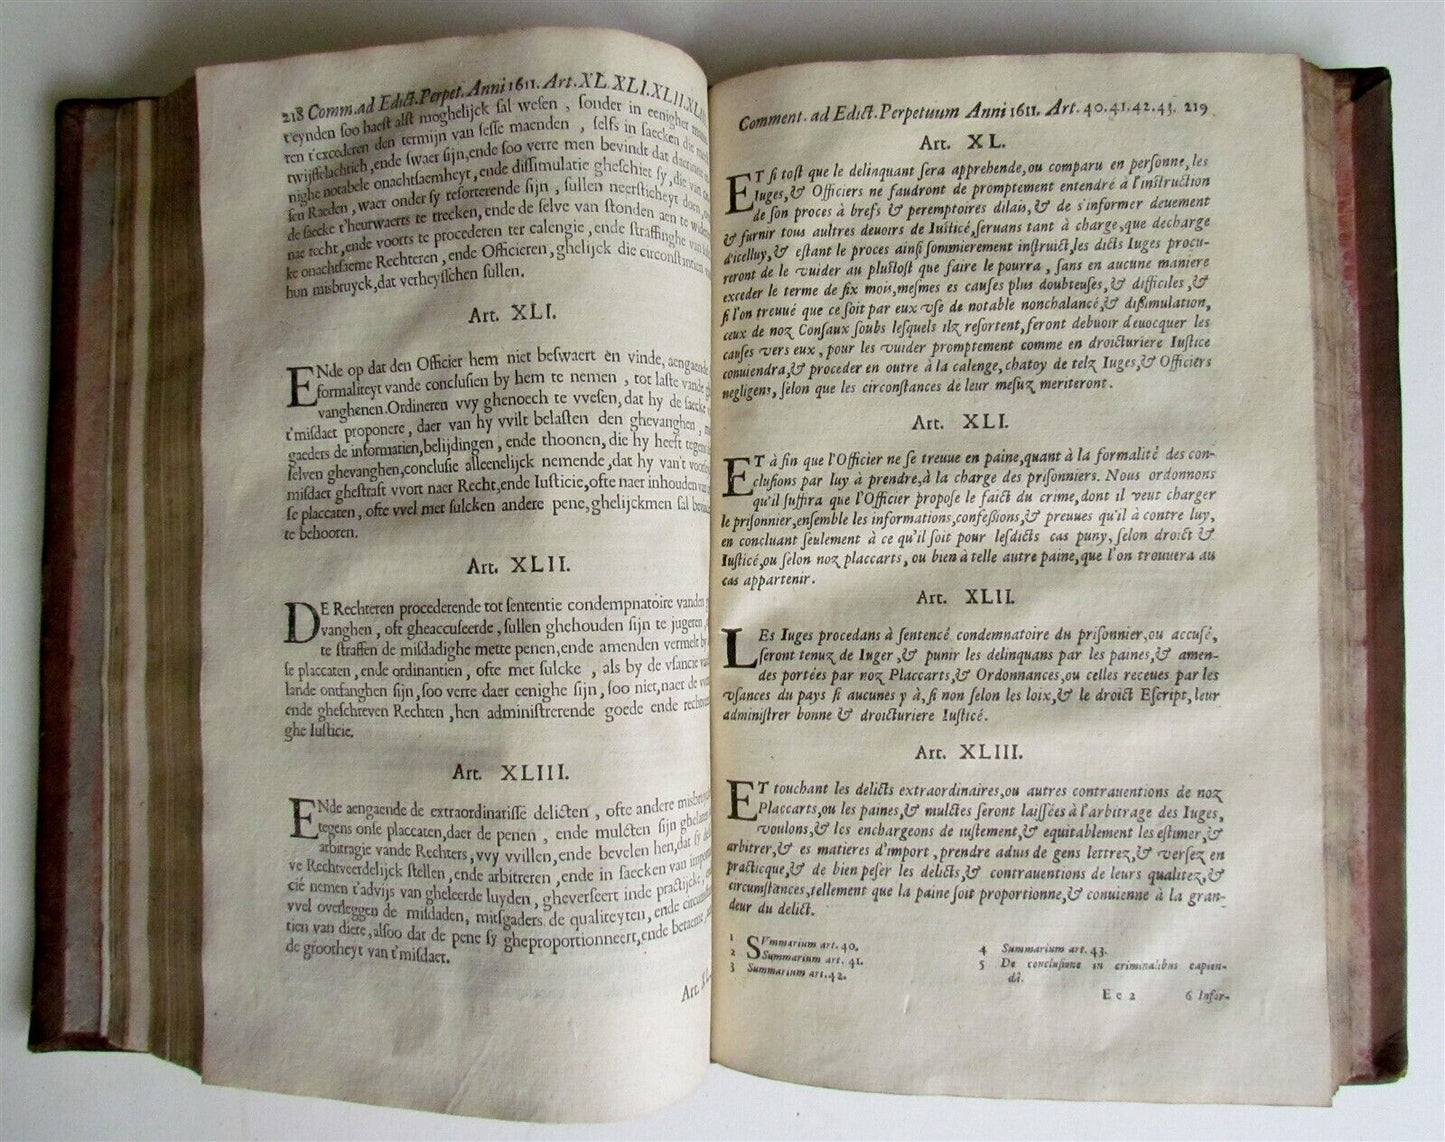 218 Comm. ad Edict. Perpet. Anni 1611. Art. XL XLI. XLII. XLIII
t'eynden ſoo haeſt alſt moghelijck ſal weſen , ſonder in eenigher
ren t'excederen den termijn van ſeſſe maenden , ſelfs in ſaecken die
twijffelachtich, ende ſwaer ſijn, ende ſoo verre men bevindt dat
nighe notabele onachtſaemheyt, ende diſſimulatie gheſchiet ſy, die van
ſen Raeden , waer onder ſy reſorterende ſijn , ſullen neerſticheyt doen,
de ſaecke t'heurwaerts te trecken, ende de ſelve van ſtonden aen te
nae recht, ende voorts te procederen ter calengie , ende ſtraffinghe van
ke onachtſaeme Rechteren , ende Officieren, ghelijck die circonſtantien
hun misbruyck, dat verheyſſchen ſullen.
Art. XLI.
ENde op dat den Officier hem niet beſwaert èn vinde, aengaende
formaliteyt vande concluſien by hem te nemen , tot laſte vande
vanghenen. Ordineren vvy ghenoech te vveſen, dat hy de ſaecke
t'miſdaet proponere , daer van hy vvilt belaſten den ghevanghen ,
gaeders de informatien, belijdingen , ende thoonen, die hy heeft tegens
ſelven ghevanghen, concluſie alleenelijck nemende, dat hy van't
miſdaet gheſtraft vvort naer Recht, ende Iuſticie, ofte naer inhouden van
ſe placcaten , ofte vvel met ſulcken andere pene, ghelijckmen ſal
te behooren.
Art. XLII.
DE Rechteren procederende tot ſententie condempnatoire vanden
vanghen , oft gheaccuſeerde , ſullen ghehouden ſijn te jugeren ,
te ſtraffen de miſdadighe mette penen, ende amenden vermelt by
ſe placcaten , ende ordinantien , ofte met ſulcke , als by de vſancie
lande ontfanghen ſijn, ſoo verre daer eenighe ſijn , ſoo niet, naer de
ende gheſchreven Rechten , hen adminiſtrerende goede ende
ghe Iuſticie.
Art. XLIII.
ENde aengaende de extraordinariſſe delicten , ofte andere
tegens onſe placcaten, daer de penen , ende mulcten ſijn
arbitragie vande Rechters, vvy vvillen, ende bevelen hen, dat ſy
ve Rechtveerdelijck ſtellen , ende arbitreren , ende in ſaecken van
cié nemen t'advijs van gheleerde luyden, gheverſeert inde practijcke,
vvel overleggen de miſdaden, mitſgaders de qualiteyten, ende
tien van diere, alſoo dat de pene ſy gheproportionneert, ende
de grootheyt van t'miſdaet.
Art.
Comment. ad Edict. Perpetuum Anni 1611. Art. 40. 41. 42. 43. 219
Art. XL.
ET ſi toſt que le delinquant ſera apprehende, ou comparu en perſonne, les
Iuges, & Officiers ne faudront de promptement entendré à l'inſtruction
de ſon procès à brefs & peremptoires dilais, & de s'informer deuement
& furnir tous aultres deuoirs de Iuſticé, ſeruans tant à charge, que decharge
d'icelluy, & eſtant le proces ainſi ſommierement inſtruict, les dicts Iuges procu-
reront de le vuider au pluſtoſt que faire le pourra , ſans en aucune maniere
exceder le terme de ſix mois, meſmes es cauſes plus doubteuſes, & difficiles , &
ſi l'on treuué que ce ſoit par eux vſe de notable nonchalancé, & diſſimulation,
ceux de noz Conſaux ſoubs leſquels ilz reſortent, feront debuoir d'euocquer les
cauſes vers eux , pour les vuider promptement comme en droicturiere Iuſtice
conuiendra, & proceder en outre à la calenge, chatoy de telz Iuges, & Officiers
negligens, ſelon que les circonſtances de leur meſuz meriteront.
Art. XLI.
ET à fin que l'Officier ne ſe treuue en paine, quant à la formalité des con-
cluſions par luy à prendre, à la charge des priſonniers. Nous ordonnons
qu'il ſuffira que l'Officier propoſe le faict du crime, dont il veut charger
le priſonnier, enſemble les informations, confeſſions, & preuues qu'il à contre luy,
en concluant ſeulement à ce qu'il ſoit pour leſdicts cas puny, ſelon droict &
Iuſticé, ou ſelon noz placcarts, ou bien à telle autre paine, que l'on trouuera au
cas appartenir.
Art. XLII.
LEs Iuges procedans à ſentencé condemnatoire du priſonnier, ou accuſé,
ſeront tenuz de Iuger , & punir les delinquans par les paines, & amen-
des portées par noz Placcarts, & Ordonnances, ou celles receues par les
vſances du pays ſi aucunes y à, ſi non ſelon les loix, & le droict Eſcript, leur
adminiſtrer bonne & droicturiere Iuſticé.
Art. XLIII.
ET touchant les delicts extraordinaires, ou autres contrauentions de noz
Placcarts, ou les paines, & mulctes ſeront laiſſées à l'arbitrage des Iuges,
voulons, & les enchargeons de iuſtement, & equitablement les eſtimer, &
arbitrer, & es matieres d'import , prendre aduis de gens lettrez, & verſez en
practicque, & de bien peſer les delicts, & contrauentions de leurs qualitez, &
circumſtances, tellement que la paine ſoit proportionne, & conuienne à la gran-
deur du delict.
1 SVmmarium art. 40.
2 Summarium art. 41.
3 Summarium art. 42.
4 Summarium art. 43.
5 De concluſione in criminalibus capien-
dâ.
Ee 2 6 Infor-